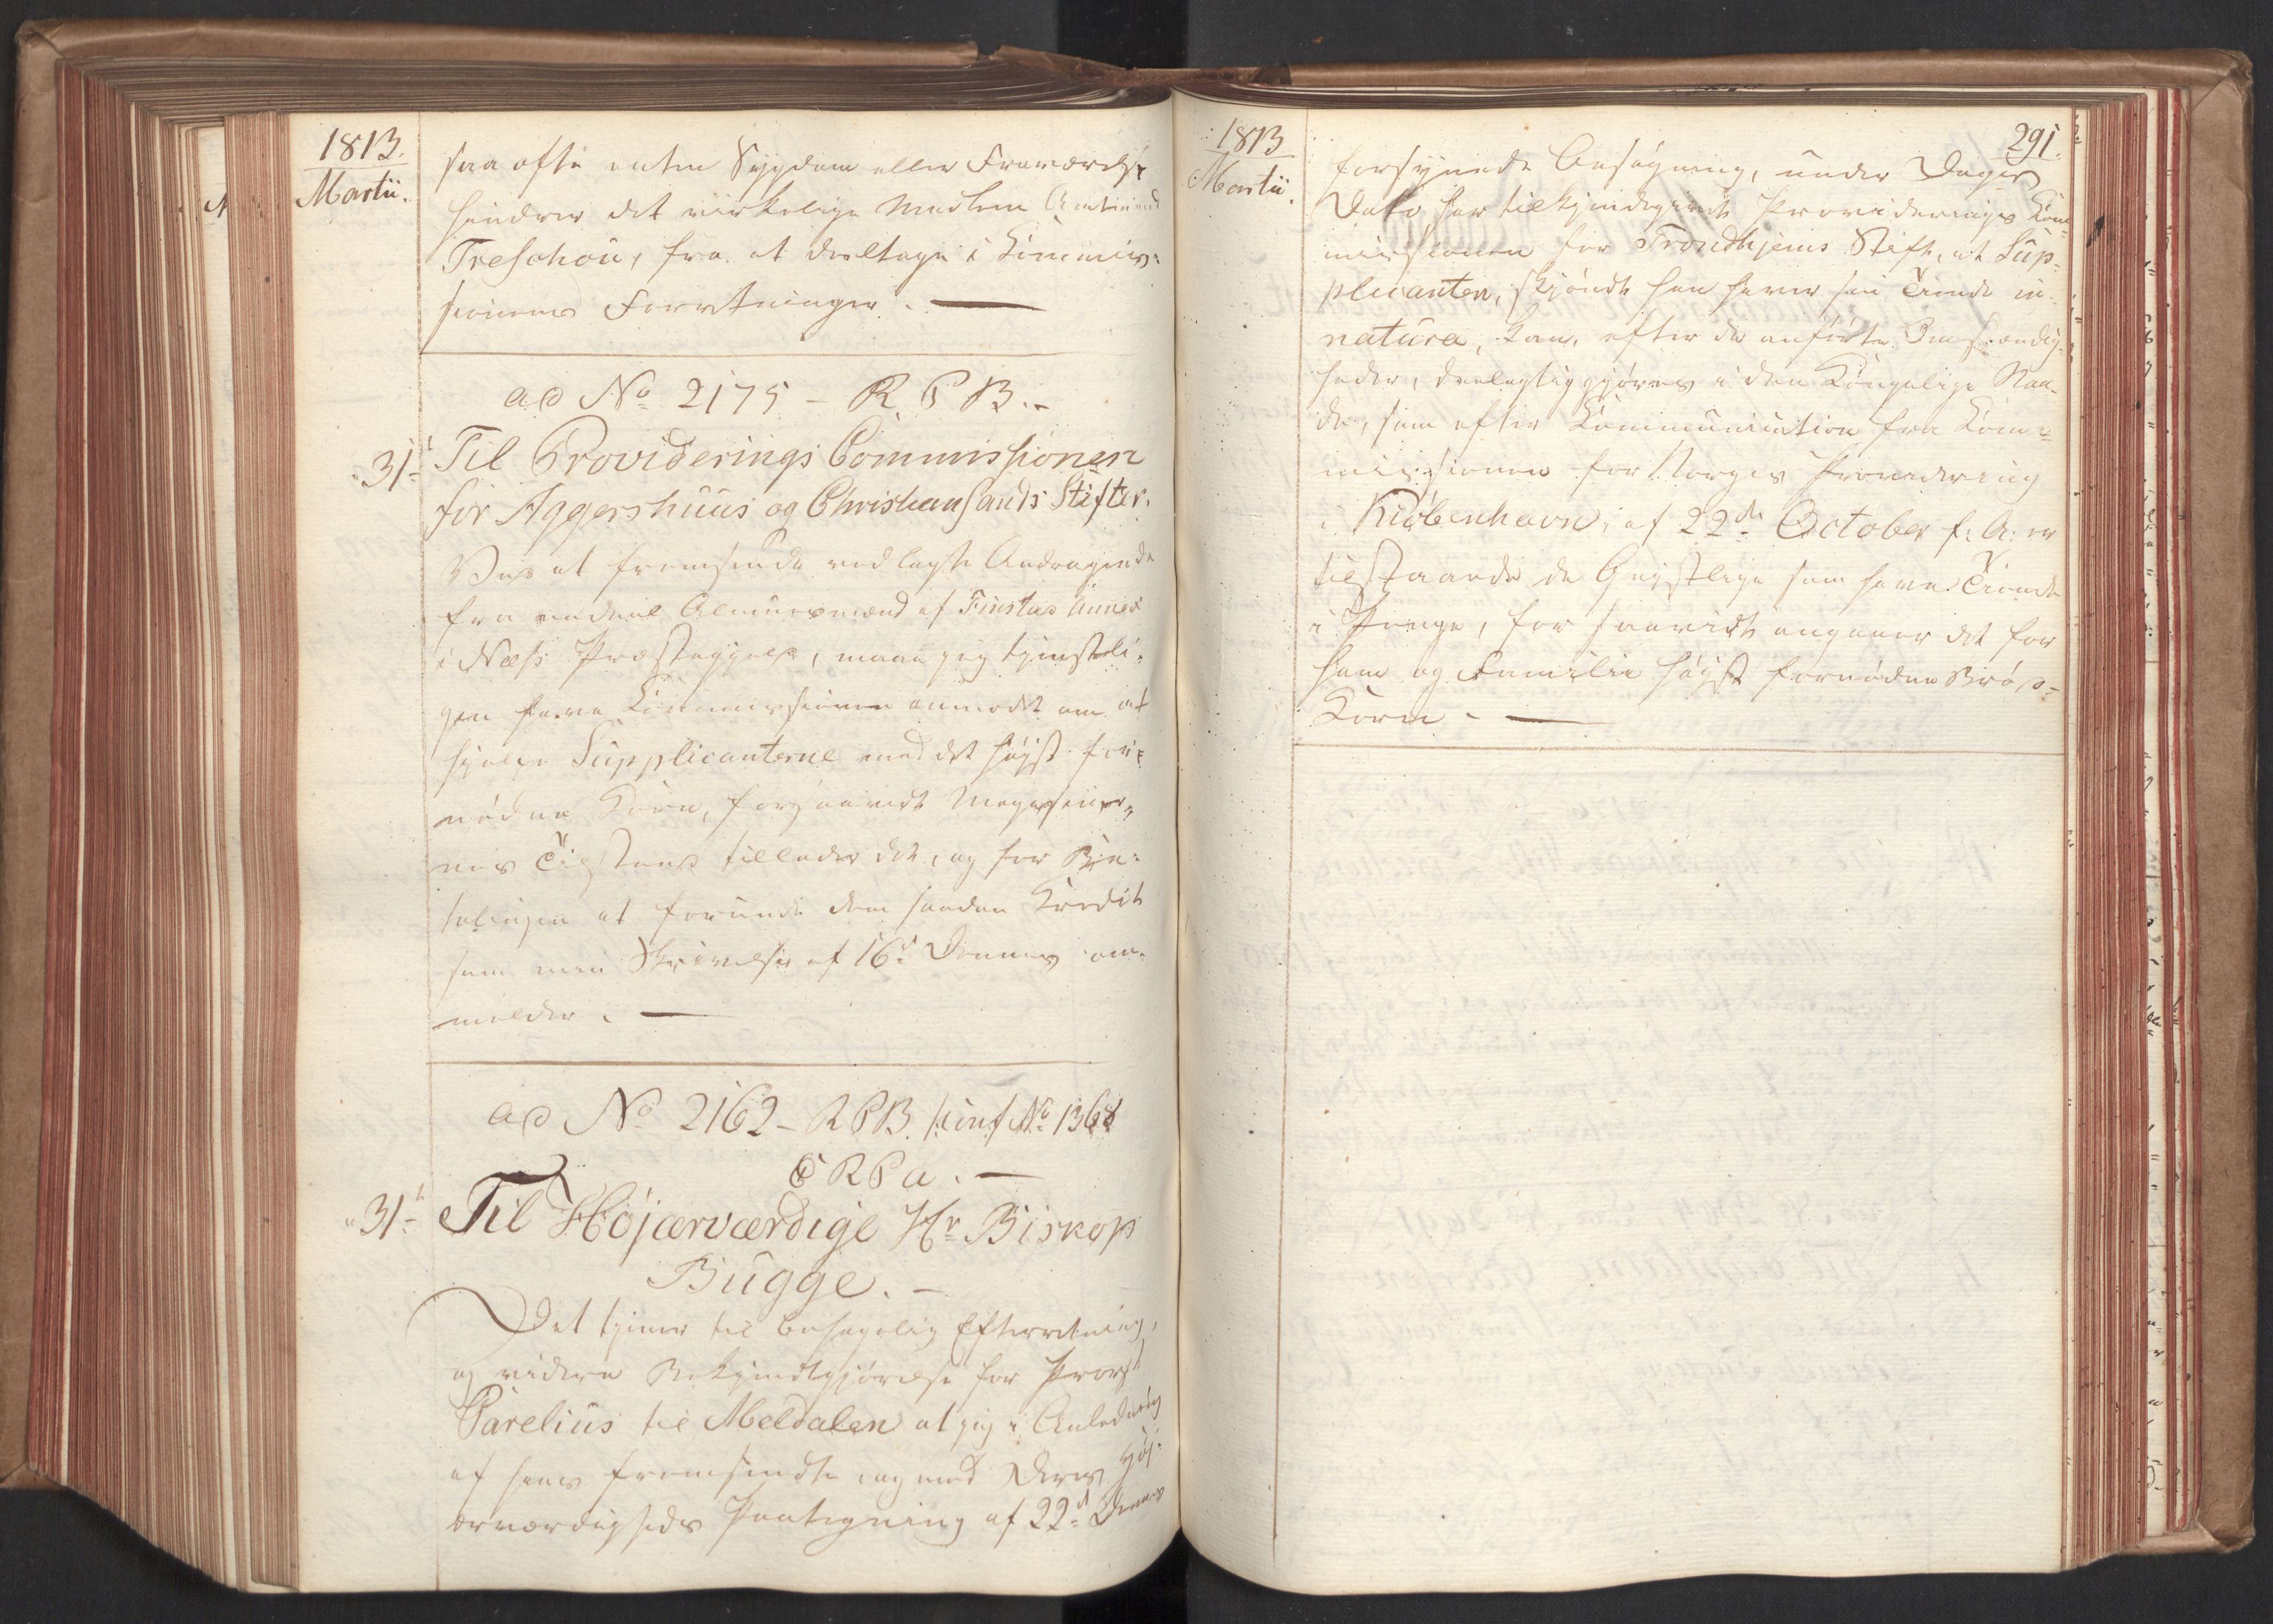 1813.
Martii.
saa ofte enten Sygdom eller Fraværelse
hindrer det virkelige Medlem Amtmand
Treschou, fra at deeltage i Commis-
sionens Forretninger. —
ad No 2175 – R P B. –
31te Til Providerings Commissionen
for Aggershuus og Christiansands Stifter.
Ved at fremsende vedlagte Andragende
fra endeel Almuesmænd af Finstad Annex
i Næss Præstegjeld, maae jeg tjenstli-
gen have Commissionen anmodet om at
hjelpe Supplicanterne med det højst for-
nødne Korn, forsaavidt Magasiner-
nes Tilstand tillader det, og for Be-
talingen at forunde dem saadan Credit
som min Skrivelse af 16de Dennes om-
melder. —
ad No 2162 – R P B. conf No 1368
C R P a. —
31te Til Højærværdige Hr Biskop
Bugge. –
Det tjener til behagelig Efterretning,
og videre Bekjendtgjørelse for Provst
Parelius til Meldalen at jeg i Anledning
af hans fremsendte og med Deres Høj-
ærværdigheds Paategning af 22de Dennes
1813
Martii.
291.
forsynede Ansøgning, under Dags
Dato har tilkjendegivet Providerings Com-
missionen for Trondhjems Stift, at Sup-
plicanten, skjøndt han hæver sin Tiende in
natura, kan, efter de anførte Omstændig-
heder, deelagtiggjøres i den Kongelige Naa-
de, som efter Communication fra Com-
missionen for Norges Providering
i Kiøbenhavn, af 22de October f: A: er
tilstaaede de Geistlige som have Tiende
i Penge, for saavidt angaaer det for
ham og Familie højst fornødne Brød-
Korn. —